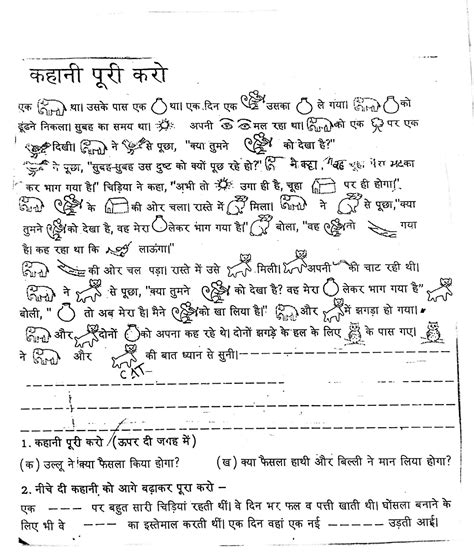 कहानी पूरी करो
एक था। उसके पास एक था। एक दिन एक उसका ले गया। को
ढूंढने निकला। सुबह का समय था। अपनी मल रहा था। को एक पर एक
दिखी। ने से पूछा, "क्या तुमने को देखा है?"
ने पूछा, "सुबह-सुबह उस दुष्ट को क्यों पूछ रहे हो?" ने कहा, "वह चूहा मेरा मटका
कर भाग गया है।" चिड़िया ने कहा, "अभी तो उगा ही है, चूहा पर ही होगा।"
के की ओर चला। रास्ते में मिला। ने से पूछा, "क्या
तुमने को देखा है, वह मेरा लेकर भाग गया है।" बोला, "वह तो गया
है। कह रहा था कि लाऊंगा।"
की ओर चल पड़ा। रास्ते में उसे मिली। अपनी को चाट रही थी।
ने से पूछा, "क्या तुमने को देखा है? वह मेरा लेकर भाग गया है"
बोली, " तो अब मेरा है। मैंने को खा लिया है।" और में झगड़ा हो गया।
और दोनों को अपना कह रहे थे। दोनों झगड़े के हल के लिए के पास गए।
ने और की बात ध्यान से सुनी।
CAT
1. कहानी पूरी करो (ऊपर दी जगह में)
(क) उल्लू ने क्या फैसला किया होगा? (ख) क्या फैसला हाथी और बिल्ली ने मान लिया होगा?
2. नीचे दी कहानी को आगे बढ़ाकर पूरा करो –
एक --- पर बहुत सारी चिड़ियां रहती थीं। वे दिन भर फल व पत्ती खाती थी। घोंसला बनाने के
लिए भी वे --- का इस्तेमाल करती थीं। एक दिन वहां एक नई ----- उड़ती आई।